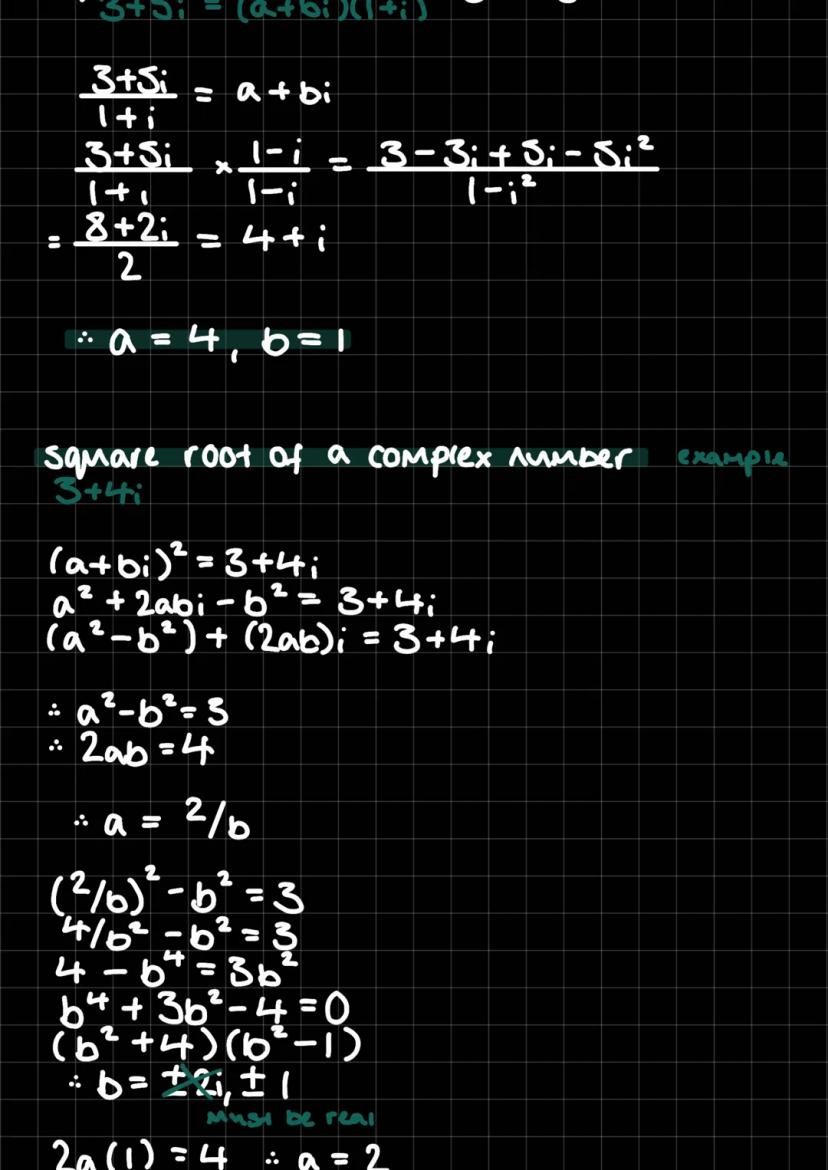 3+5i = (a+bi)(1+i)
3+5i/1+i = a+bi
3+5i/1+i × 1-i/1-i = 3-3i+5i-5i²/1-i²
= 8+2i/2 = 4+i
∴ a = 4, b = 1
square root of a complex number example
3+4i
(a+bi)² = 3+4i
a² + 2abi - b² = 3+4i
(a²-b²) + (2ab)i = 3+4i
∴ a²-b² = 3
∴ 2ab = 4
∴ a = 2/b
(2/b)² - b² = 3
4/b² - b² = 3
4 - b⁴ = 3b²
b⁴ + 3b² - 4 = 0
(b² + 4)(b² - 1)
∴ b = ±2i, ±1
must be real
2a(1) = 4 ∴ a = 2